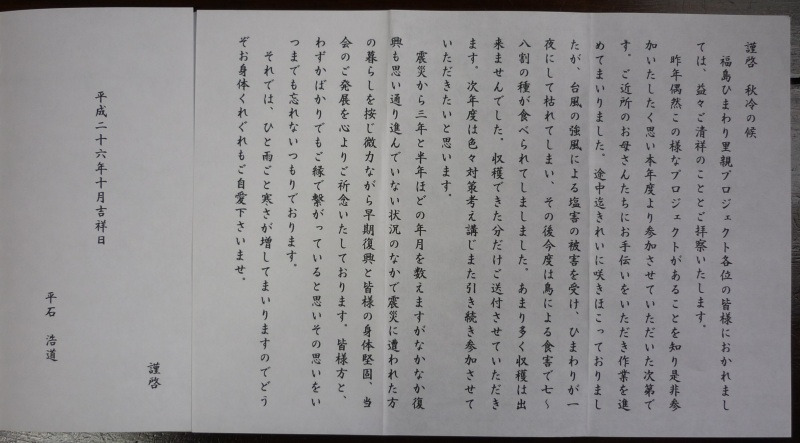 謹啓　秋冷の候
福島ひまわり里親プロジェクト各位の皆様におかれまし
ては、益々ご清祥のこととご拝察いたします。
昨年偶然この様なプロジェクトがあることを知り是非参
加いたしたく思い本年度より参加させていただいた次第で
す。ご近所のお母さんたちにお手伝いをいただき作業を進
めてまいりました。途中迄きれいに咲きほこっておりまし
たが、台風の強風による塩害の被害を受け、ひまわりが一
夜にして枯れてしまい、その後今度は鳥による食害で七〜
八割の種が食べられてしましました。あまり多く収穫は出
来ませんでした。収穫できた分だけご送付させていただき
ます。次年度は色々対策考え講じまた引き続き参加させて
いただきたいと思います。
震災から三年と半年ほどの年月を数えますがなかなか復
興も思い通り進んでいない状況のなかで震災に遭われた方
の暮らしを按じ微力ながら早期復興と皆様の身体堅固、当
会のご発展を心よりご祈念いたしております。皆様方と、
わずかばかりでもご縁で繋がっていると思いその思いをい
つまでも忘れないつもりでおります。
それでは、ひと雨ごと寒さが増してまいりますのでどう
ぞお身体くれぐれもご自愛下さいませ。
謹啓
平成二十六年十月吉祥日
平石　浩道